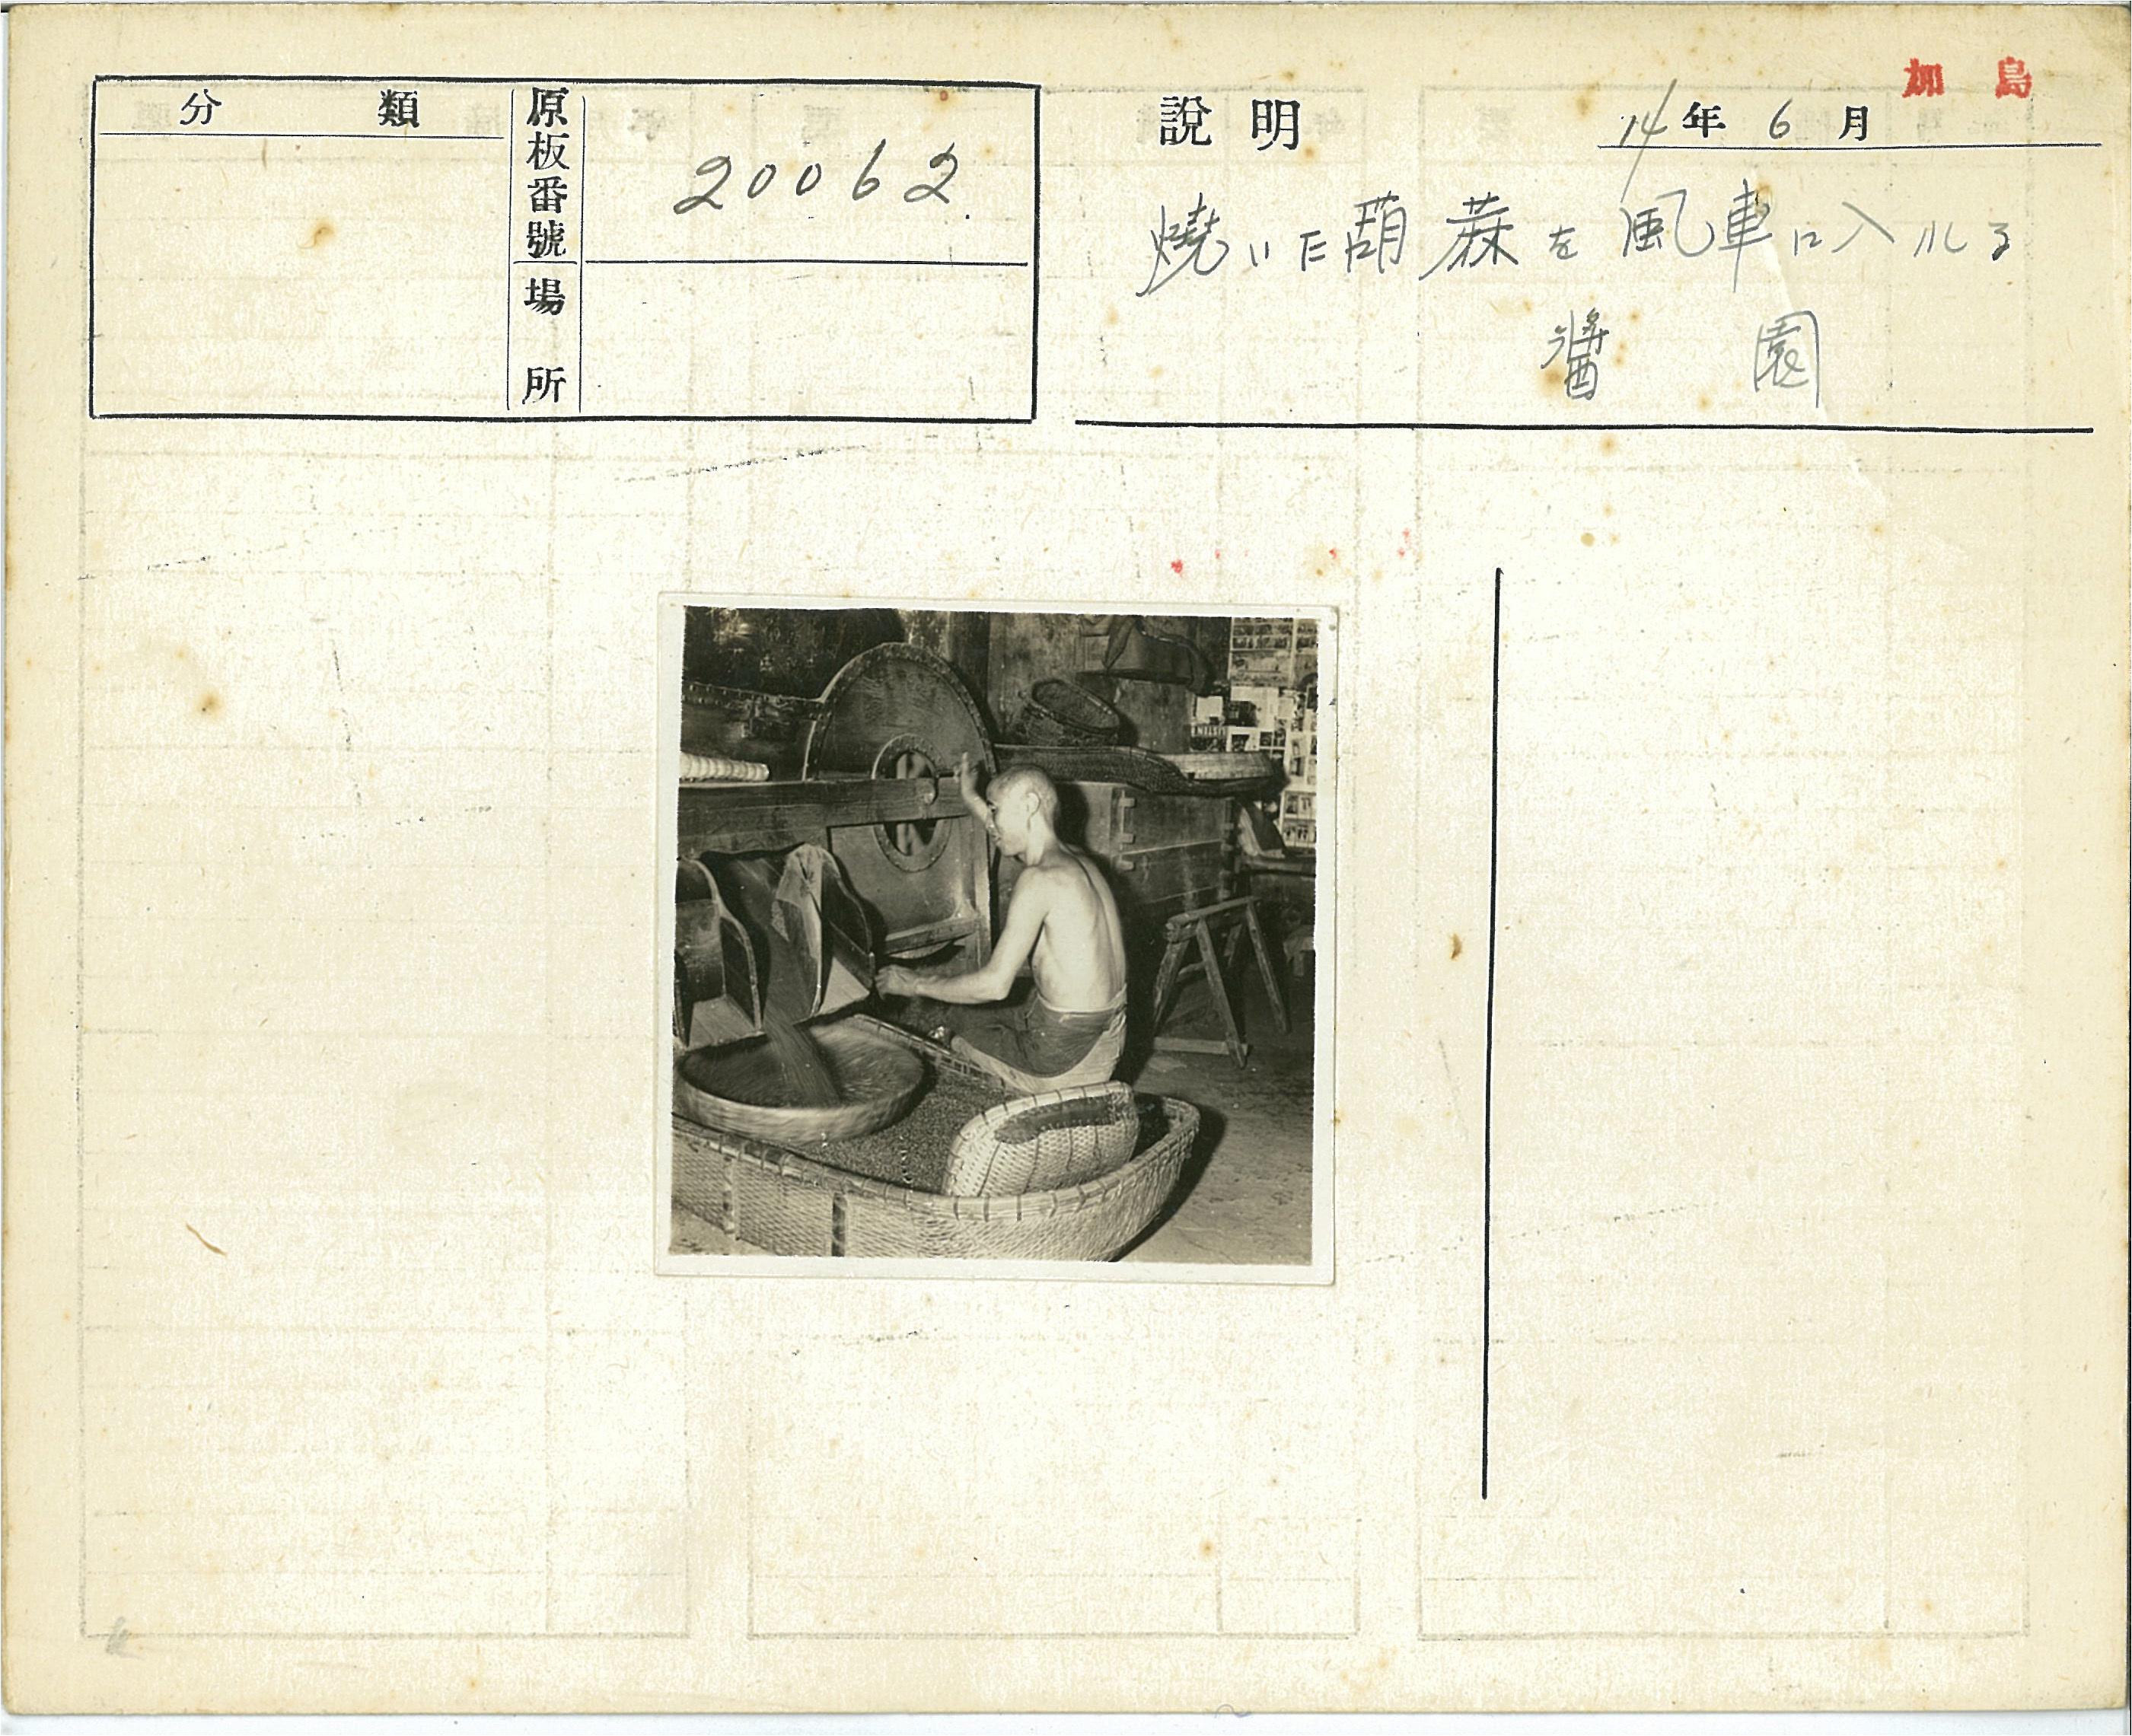 分類
原板番號
20062
場所
加島
說明
14年6月
燒いた葫蔴を風車に入れる
醬園